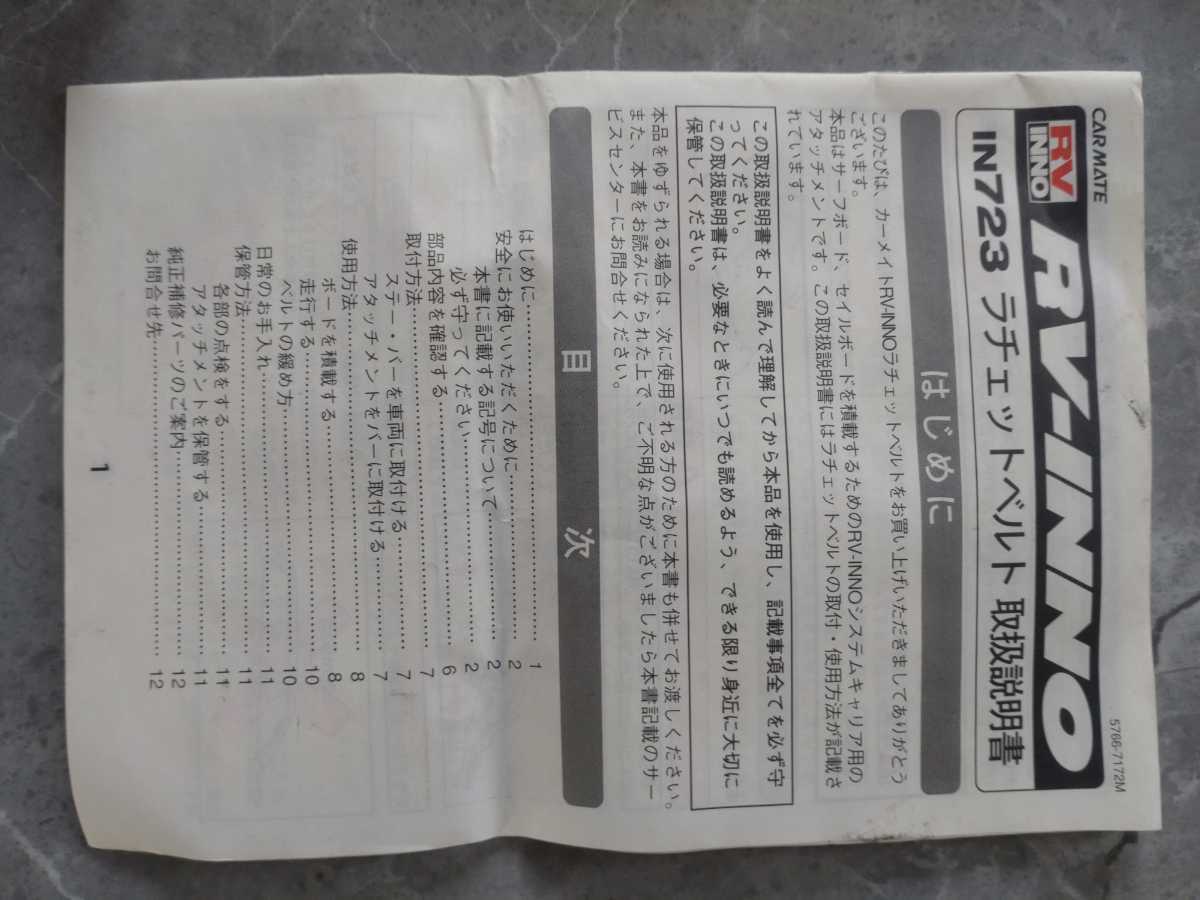 CAR MATE
5766-7172M
RV INNO RV-INNO
IN723 ラチェットベルト 取扱説明書
はじめに
このたびは、カーメイトRV-INNOラチェットベルトをお買い上げいただきましてありがとう
ございます。
本品はサーフボード、セイルボードを積載するためのRV-INNOシステムキャリア用の
アタッチメントです。この取扱説明書にはラチェットベルトの取付・使用方法が記載さ
れています。
この取扱説明書をよく読んで理解してから本品を使用し、記載事項全てを必ず守
ってください。
この取扱説明書は、必要なときにいつでも読めるよう、できる限り身近に大切に
保管してください。
本品をゆずられる場合は、次に使用される方のために本書も併せてお渡しください。
また、本書をお読みになられた上で、ご不明な点がございましたら本書記載のサー
ビスセンターにお問合せください。
目 次
はじめに…………………………………… 1
安全にお使いいただくために…………… 2
本書に記載する記号について…………… 2
必ず守ってください……………………… 2
部品内容を確認する……………………… 6
取付方法…………………………………… 7
ステー・バーを車両に取付ける………… 7
アタッチメントをバーに取付ける……… 7
使用方法…………………………………… 8
ボードを積載する………………………… 8
走行する…………………………………… 10
ベルトの緩め方…………………………… 10
日常のお手入れ…………………………… 11
保管方法…………………………………… 11
各部の点検をする………………………… 11
アタッチメントを保管する……………… 11
純正補修パーツのご案内………………… 12
お問合せ先………………………………… 12
1